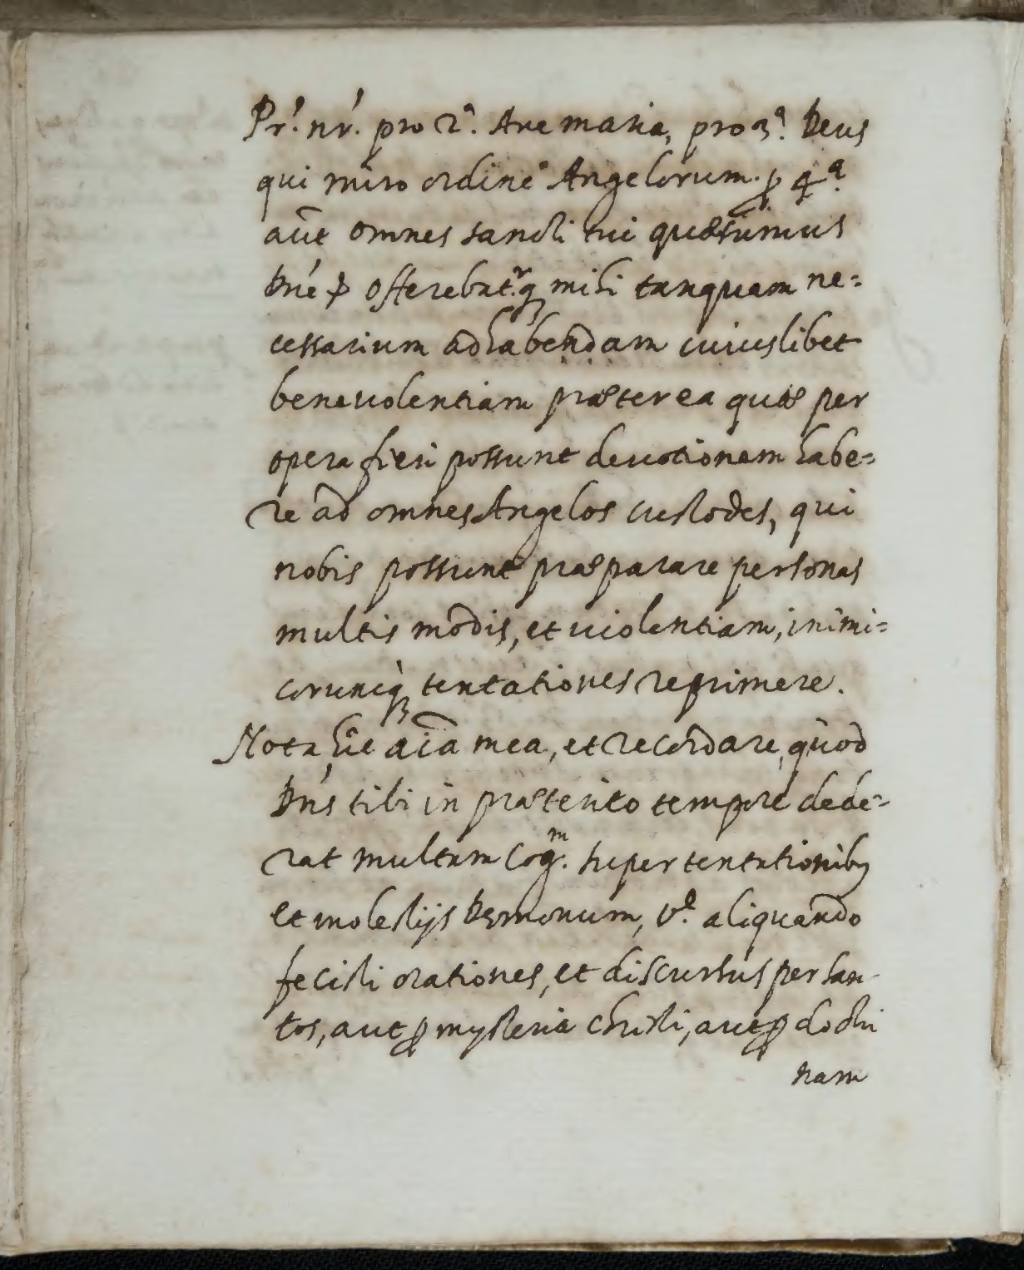 Pr̃. nr̃. pro 2ª. Ave maria, pro 3ª. Deus
qui miro ordine Angelorum. ꝑ 4ª.
aũt omnes sancti tui quæsumus
Dñé & Offerebat.ʳ q̃ꝫ mihi tanquam ne=
cessarium ad habendam cuiuslibet
beneuolentiam præter ea quæ per
opera fieri possunt deuotionem habe=
re ad omnes Angelos custodes, qui
nobis possunt præparare personas
multis modis, et uiolentiam, inimi=
corumq̀ꝫ tentationes reprimere.
Nota hic aĩa mea, et recordare, quòd
Dñs tibi in præterito tempore dede=
rat multam Cog.ᵐ super tentationibꝫ
et molestijs Dęmonum, v.ᵈ aliquando
fecisti orationes, et discursus per san-
tos, aut ꝑ mysteria christi, aut ꝑ doctri
nam